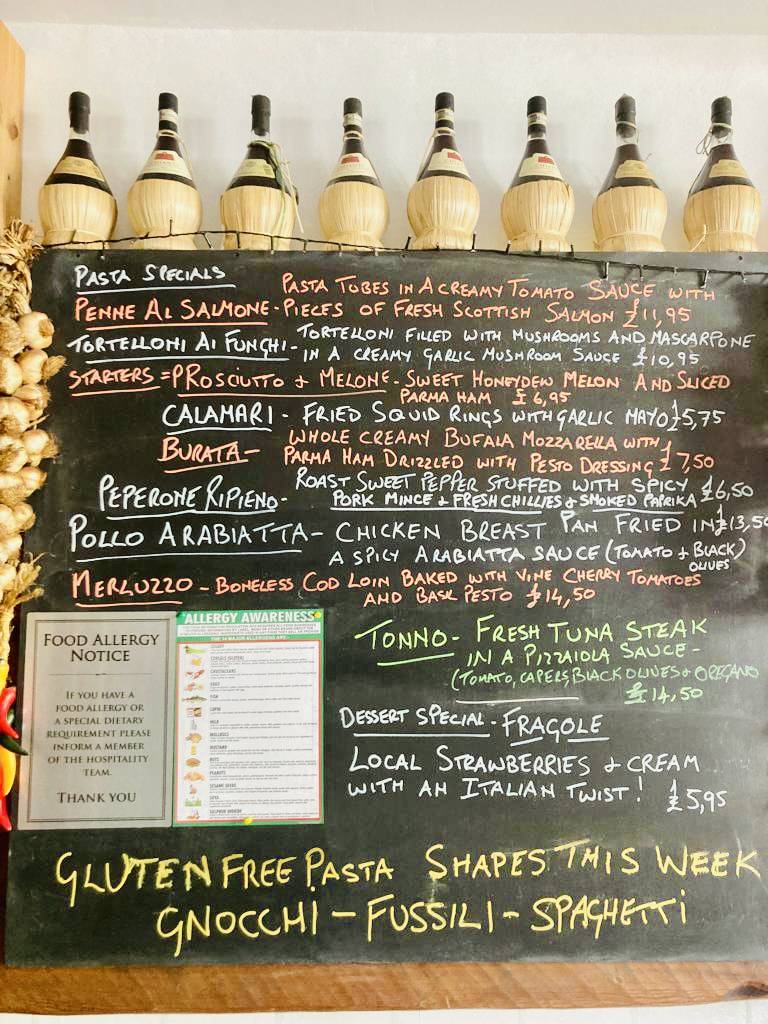 PASTA SPECIALS
PASTA TUBES IN A CREAMY TOMATO SAUCE WITH
PENNE AL SALMONE - PIECES OF FRESH SCOTTISH SALMON £11,95
TORTELLONI AI FUNGHI - TORTELLONI FILLED WITH MUSHROOMS AND MASCARPONE
IN A CREAMY GARLIC MUSHROOM SAUCE £10,95
STARTERS = PROSCIUTTO & MELONE - SWEET HONEYDEW MELON AND SLICED
PARMA HAM £6,95
CALAMARI - FRIED SQUID RINGS WITH GARLIC MAYO £5,75
BURATA - WHOLE CREAMY BUFALA MOZZARELLA WITH
PARMA HAM DRIZZLED WITH PESTO DRESSING £7,50
PEPERONE RIPIENO - ROAST SWEET PEPPER STUFFED WITH SPICY
PORK MINCE & FRESH CHILLIES & SMOKED PAPRIKA £6,50
POLLO ARABIATTA - CHICKEN BREAST PAN FRIED IN £13,50
A SPICY ARABIATTA SAUCE (TOMATO & BLACK)
OLIVES
MERLUZZO - BONELESS COD LOIN BAKED WITH VINE CHERRY TOMATOES
AND BASIL PESTO £14,50
TONNO - FRESH TUNA STEAK
IN A PIZZAIOLA SAUCE -
(TOMATO, CAPERS, BLACK OLIVES & OREGANO
£14,50
DESSERT SPECIAL - FRAGOLE
LOCAL STRAWBERRIES & CREAM
WITH AN ITALIAN TWIST! £5,95
FOOD ALLERGY
NOTICE
IF YOU HAVE A
FOOD ALLERGY OR
A SPECIAL DIETARY
REQUIREMENT PLEASE
INFORM A MEMBER
OF THE HOSPITALITY
TEAM.
THANK YOU
ALLERGY AWARENESS
THE 14 MAJOR ALLERGENS ARE
CELERY
CEREALS (GLUTEN)
CRUSTACEANS
EGGS
FISH
LUPIN
MILK
MOLLUSCS
MUSTARD
NUTS
PEANUTS
SESAME SEEDS
SOYA
SULPHUR DIOXIDE
GLUTEN FREE PASTA SHAPES THIS WEEK
GNOCCHI - FUSSILI - SPAGHETTI